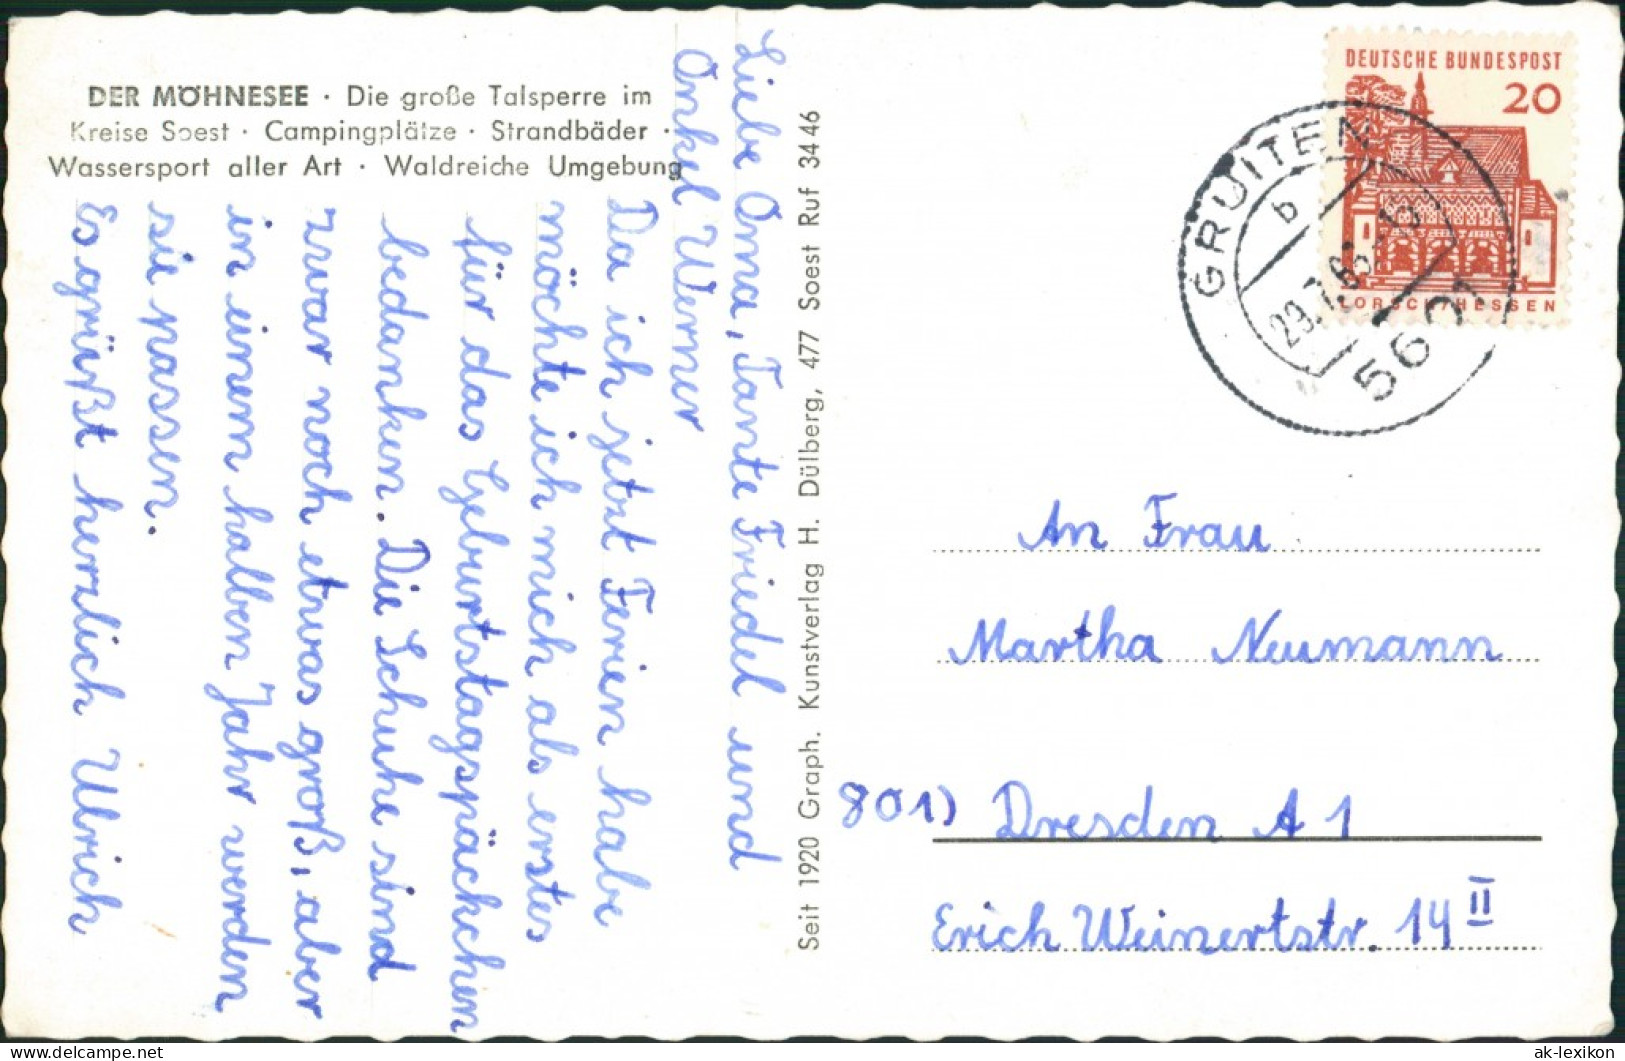 DER MÖHNESEE · Die große Talsperre im
Kreise Soest · Campingplätze · Strandbäder ·
Wassersport aller Art · Waldreiche Umgebung
Liebe Oma, Tante Friedel und
Onkel Werner
Da ich jetzt Ferien habe
möchte ich mich als erstes
für das Geburtstagspäckchen
bedanken. Die Schuhe sind
zwar noch etwas groß, aber
in einem halben Jahr werden
sie passen.
Es grüßt herzlich Ulrich
Seit 1920 Graph. Kunstverlag H. Dülberg, 477 Soest Ruf 34 46
DEUTSCHE BUNDESPOST
20
LORSCH/HESSEN
GRUITEN
b
An Frau
Martha Neumann
801) Dresden A 1
Erich Weinertstr. 14 II
ak-lexikon
www.delcampe.net